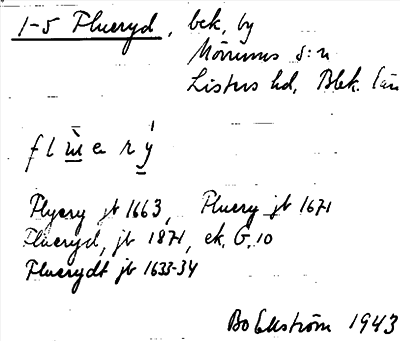 1-5 Flueryd, bek, by
Mörrums s:n
Listers hd, Blek. län
Flyery jb 1663, Fluery jb 1671
Flueryd, jb 1871, ek. G. 10
Fluerydt jb 1633-34
Bo Ekström 1943